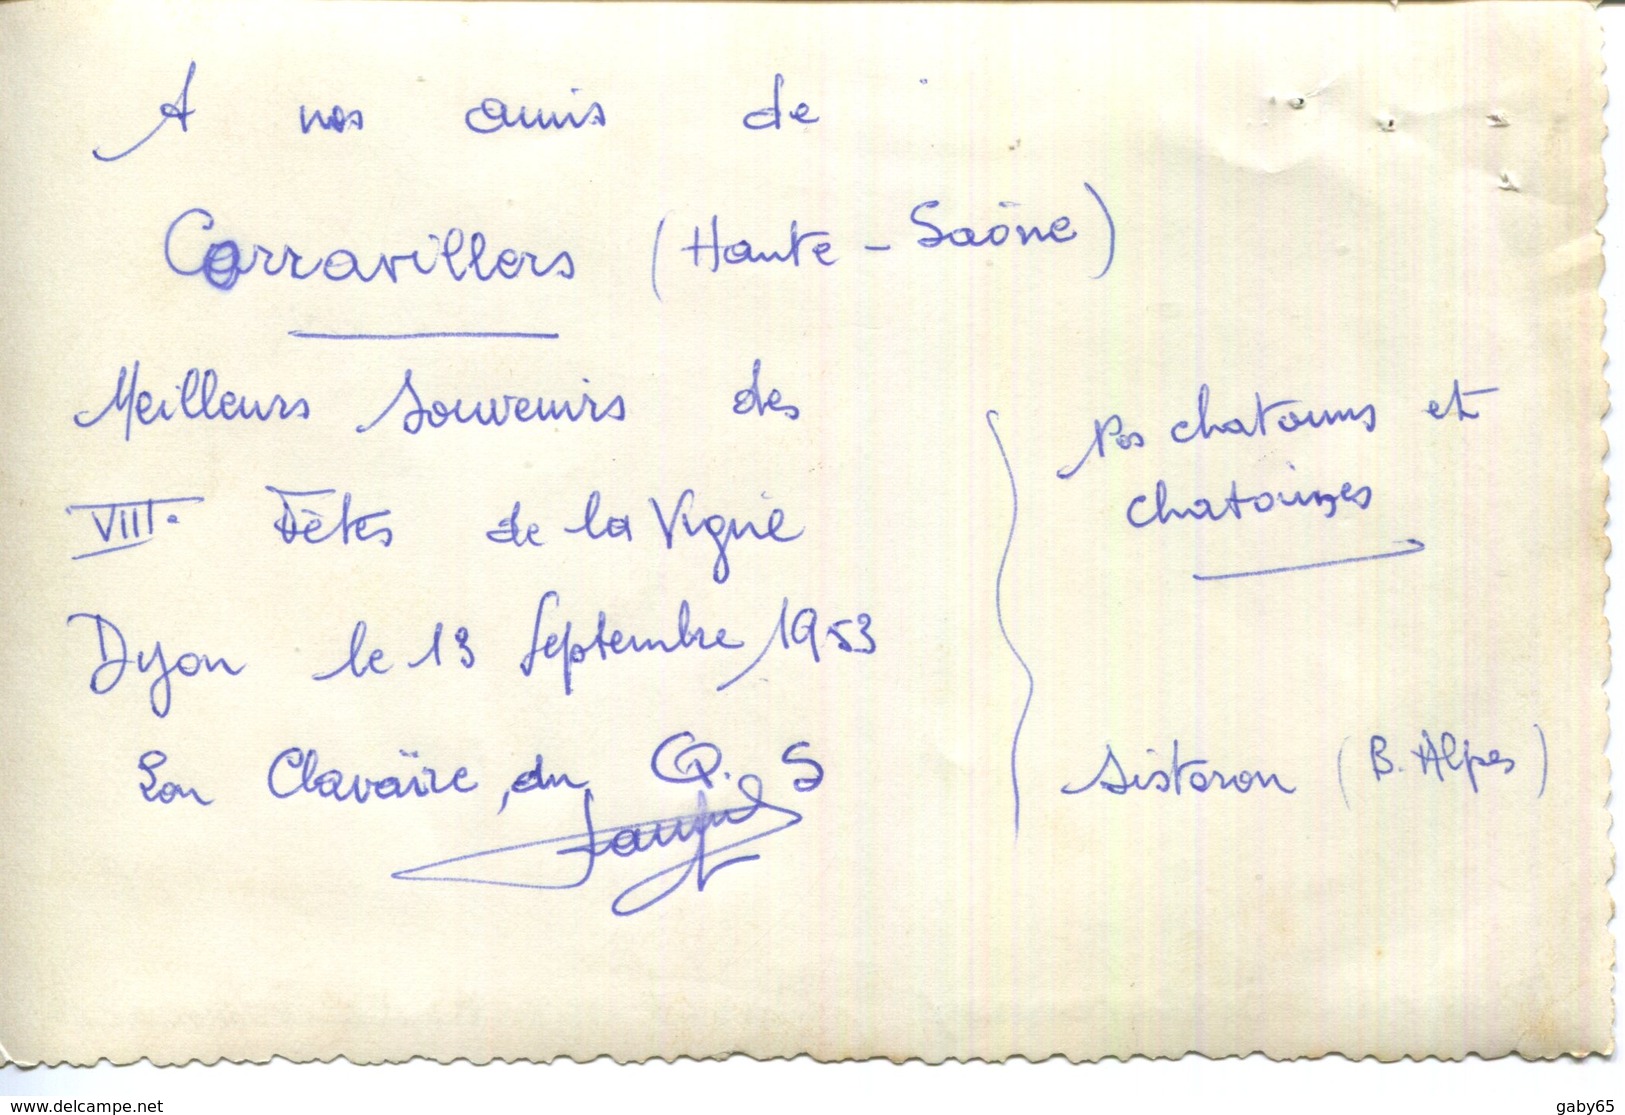 A nos amis de
Corravillers (Haute-Saône)
Meilleurs Souvenirs des
VIII. Fêtes de la Vigne
Dijon le 13 Septembre 1953
Lou Clavaïre, du Q. S
Nos chatouns et
chatounes
Sisteron (B. Alpes)
www.delcampe.net
gaby65